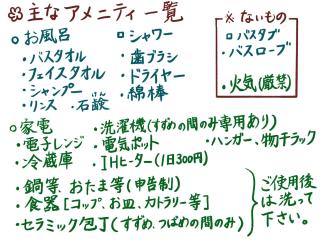 主なアメニティ一覧
お風呂
・バスタオル
・フェイスタオル
・シャンプー
・リンス ・石鹸
シャワー
・歯ブラシ
・ドライヤー
・綿棒
※ ないもの
バスタブ
・バスローブ
・火気(厳禁)
家電
・電子レンジ
・冷蔵庫
・洗濯機(すずめの間のみ専用あり)
・電気ポット ・ハンガー、物干ラック
・IHヒーター(1日300円)
・鍋等、おたま等(申告制)
・食器[コップ、お皿、カトラリー等]
・セラミック包丁(すずめ、つばめの間のみ)
ご使用後
は洗って
下さい。